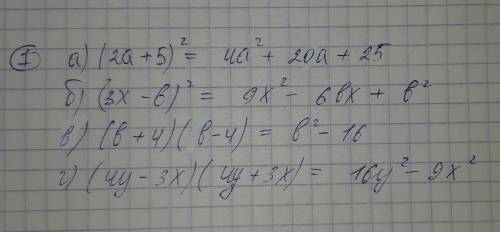 ① а) (2a+5)² = 4a² + 20a + 25
б) (3x-в)² = 9x² - 6вx + в²
в) (в+4)(в-4) = в² - 16
г) (4y-3x)(4y+3x) = 16y² - 9x²